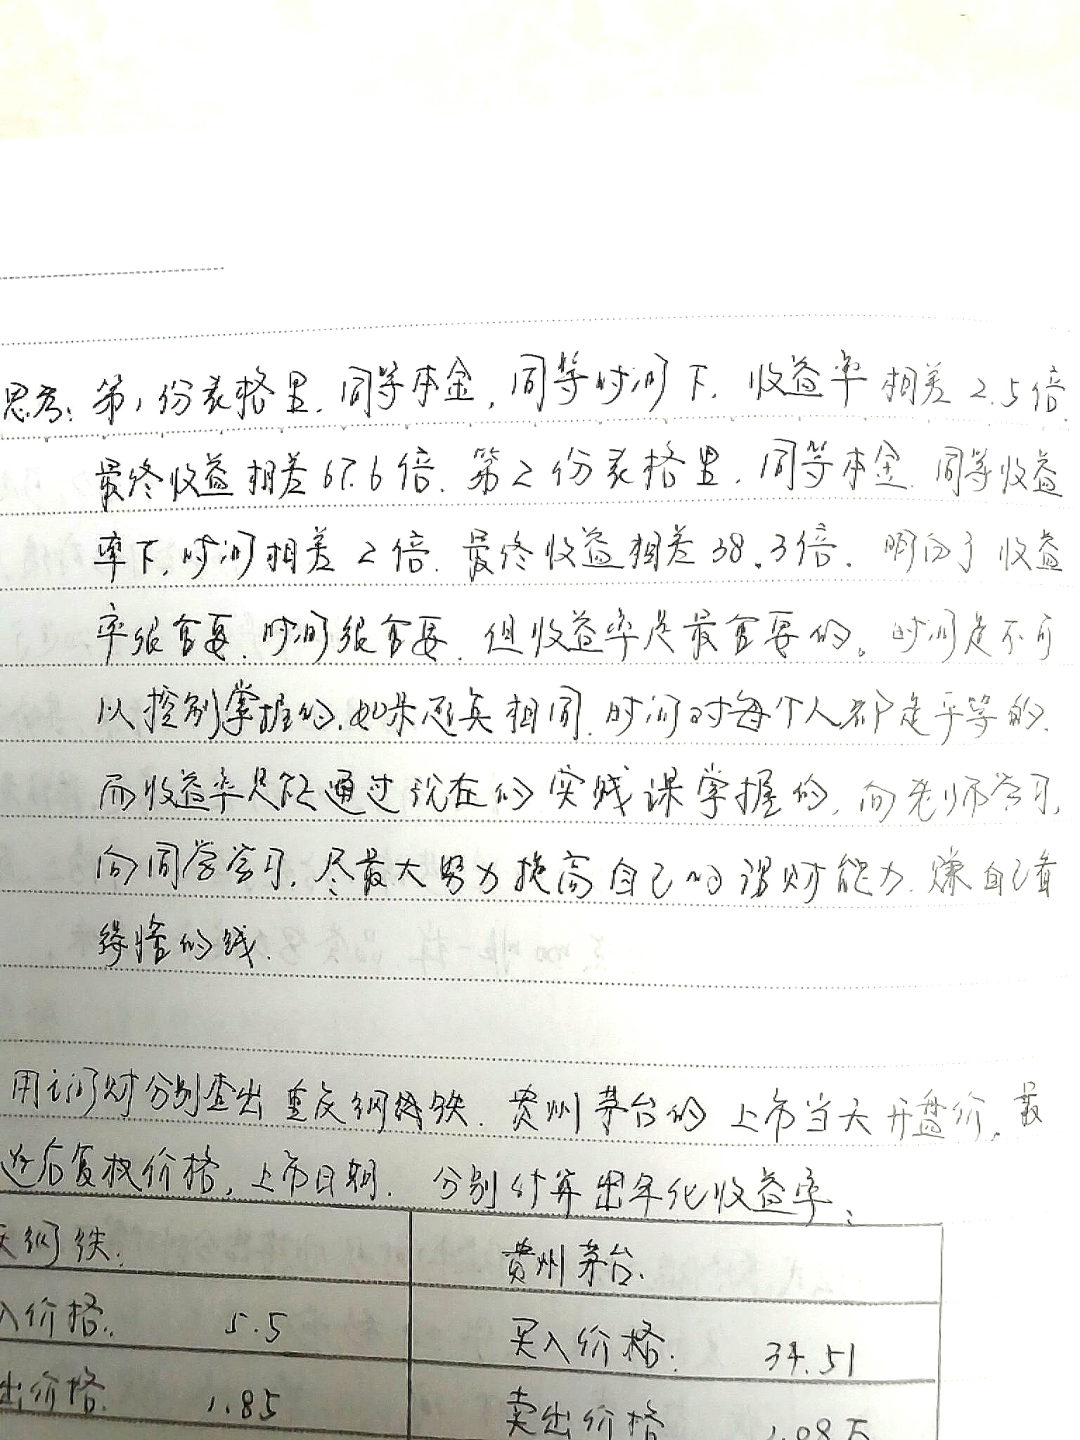 思考：第1份表格里，同等本金，同等时间下，收益率相差2.5倍.
最终收益相差67.6倍. 第2份表格里，同等本金. 同等收益
率下，时间相差2倍. 最终收益相差38.3倍. 明白了收益
率很重要，时间很重要，但收益率是最重要的。时间是不可
以控制掌握的，如果相同，时间对每个人都是平等的，
而收益率是能通过现在的实践课掌握的，向老师学习，
向同学学习，尽最大努力提高自己的理财能力，赚自己看
得懂的钱.
用i问财分别查出重庆钢铁，贵州茅台的上市当天开盘价，最
近后复权价格，上市日期. 分别计算出年化收益率：
庆钢铁：
贵州茅台.
入价格： 5.5
买入价格： 34.51
出价格. 1.85
卖出价格 1.08万